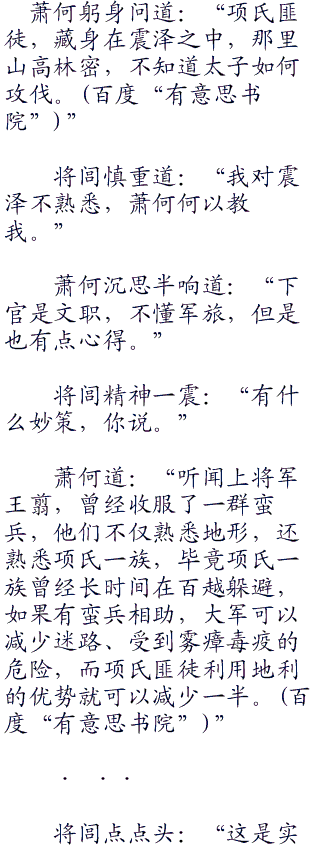 萧何躬身问道：“项氏匪
徒，藏身在震泽之中，那里
山高林密，不知道太子如何
攻伐。(百度“有意思书
院”)”
将闾慎重道：“我对震
泽不熟悉，萧何何以教
我。”
萧何沉思半响道：“下
官是文职，不懂军旅，但是
也有点心得。”
将闾精神一震：“有什
么妙策，你说。”
萧何道：“听闻上将军
王翦，曾经收服了一群蛮
兵，他们不仅熟悉地形，还
熟悉项氏一族，毕竟项氏一
族曾经长时间在百越躲避，
如果有蛮兵相助，大军可以
减少迷路、受到雾瘴毒疫的
危险，而项氏匪徒利用地利
的优势就可以减少一半。(百
度“有意思书院”)”
. . .
将闾点点头：“这是实